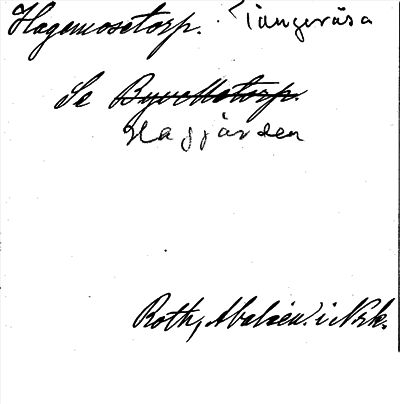 Hagemosetorp. Tångeråsa
Se Byvallstorp.
Hagjärden
Roth, i Nrk.